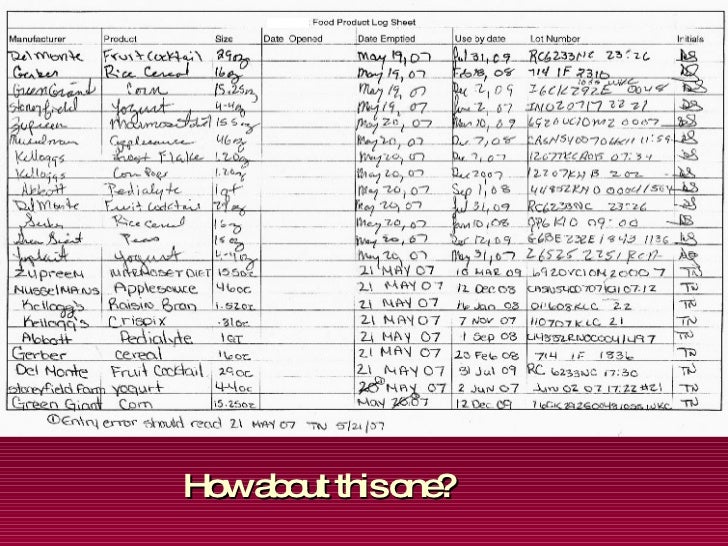 Food Product Log Sheet
Manufacturer Product Size Date Opened Date Emptied Use by date Lot Number Initials
Del Monte Fruit Cocktail 29oz May 19, 07 Jul 31, 09 RC6233NC 23:26 DS
Gerber Rice Cereal 16oz May 19, 07 Feb 08 714 1F 2310 DS
Green Giant Corn 15.25oz May 19, 07 Dec 2, 09 0048 DS
Stonyfield Yogurt 4.4oz May 19, 07 2, 07 22 21 DS
Zupreem 15.5oz May 20, 07 10, 09 6920VCIOM2 0007 DS
Applesauce 46oz May 20, 07 Dec 7, 08 11:59 DS
Kelloggs 1.20oz May 20, 07 07:34 DS
Kelloggs Corn Pops 1.20oz May 20, 07 Dec 2007 12207KNB 202 DS
Abbott Pedialyte 1qt May 20, 07 Sep 1, 08 DS
Del Monte Fruit Cocktail 29oz May 20, 07 Jul 31, 09 RC6233NC 23:26 DS
Rice Cereal 16oz May 20, 07 10, 08 09:00 DS
Peas 15oz May 20, 07 Dec 12, 09 1136 DS
Yoplait Yogurt May 20, 07 May 31, 07
Zupreem MARMOSET DIET 15.5oz 21 MAY 07 10 MAR 09 6920VCIOM2000 7 TN
MUSSELMANS Applesauce 46oz 21 MAY 07 12 Dec 08 07:12 TN
Kellogg's Raisin Bran 1.52oz 21 MAY 07 16 Jan 08 011608KLC 22 TN
Kellogg's Crispix .81oz 21 MAY 07 7 NOV 07 110707KLC 21 TN
Abbott Pedialyte 1QT 21 MAY 07 1 Sep 08 TN
Gerber cereal 16oz 21 MAY 07 714 1F 1836 TN
Del Monte Fruit Cocktail 29oz 21 MAY 07 31 Jul 09 RC 6233NC 17:30 TN
Stoneyfield Farm yogurt 4.4oz MAY 07 2 Jun 07 Jun 02 07 17:22 #21 TN
Green Giant Corn 15.25oz May 07 12 Dec 09 TN
① Entry error should read 21 MAY 07 TN 5/21/07
How about this one?